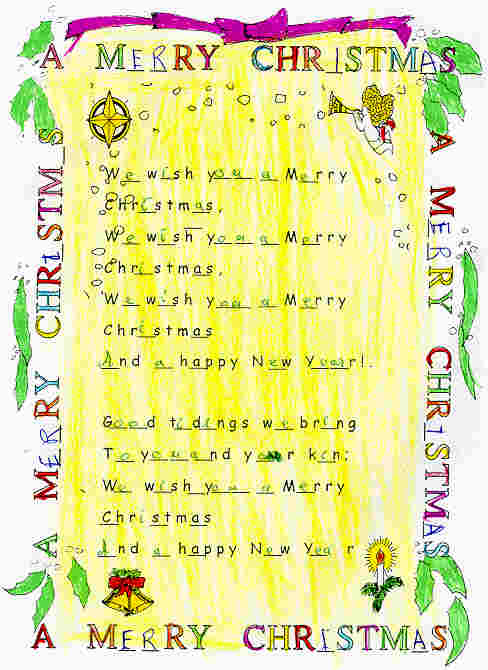 A MERRY CHRISTMAS
A MERRY CHRISTMS
A MERRY CHRISTMAS
We wish you a Merry
Christmas,
We wish you a Merry
Christmas,
We wish you a Merry
Christmas
And a happy New Year!.
Good tidings we bring
To you and your kin;
We wish you a Merry
Christmas
And a happy New Year
A MERRY CHRISTMAS